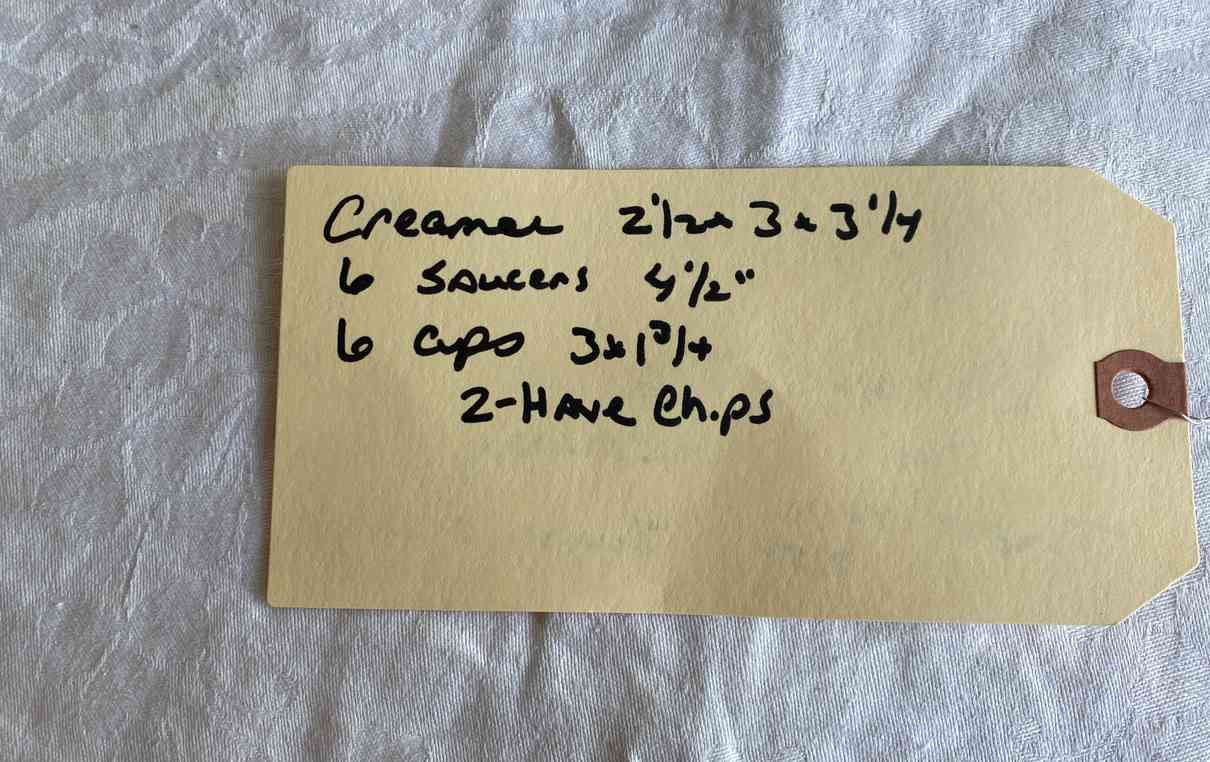 Creamer 2 1/2 x 3 x 3 1/4
6 Saucers 4 1/2"
6 Cups 3 x 1 3/4
2-Have Chips